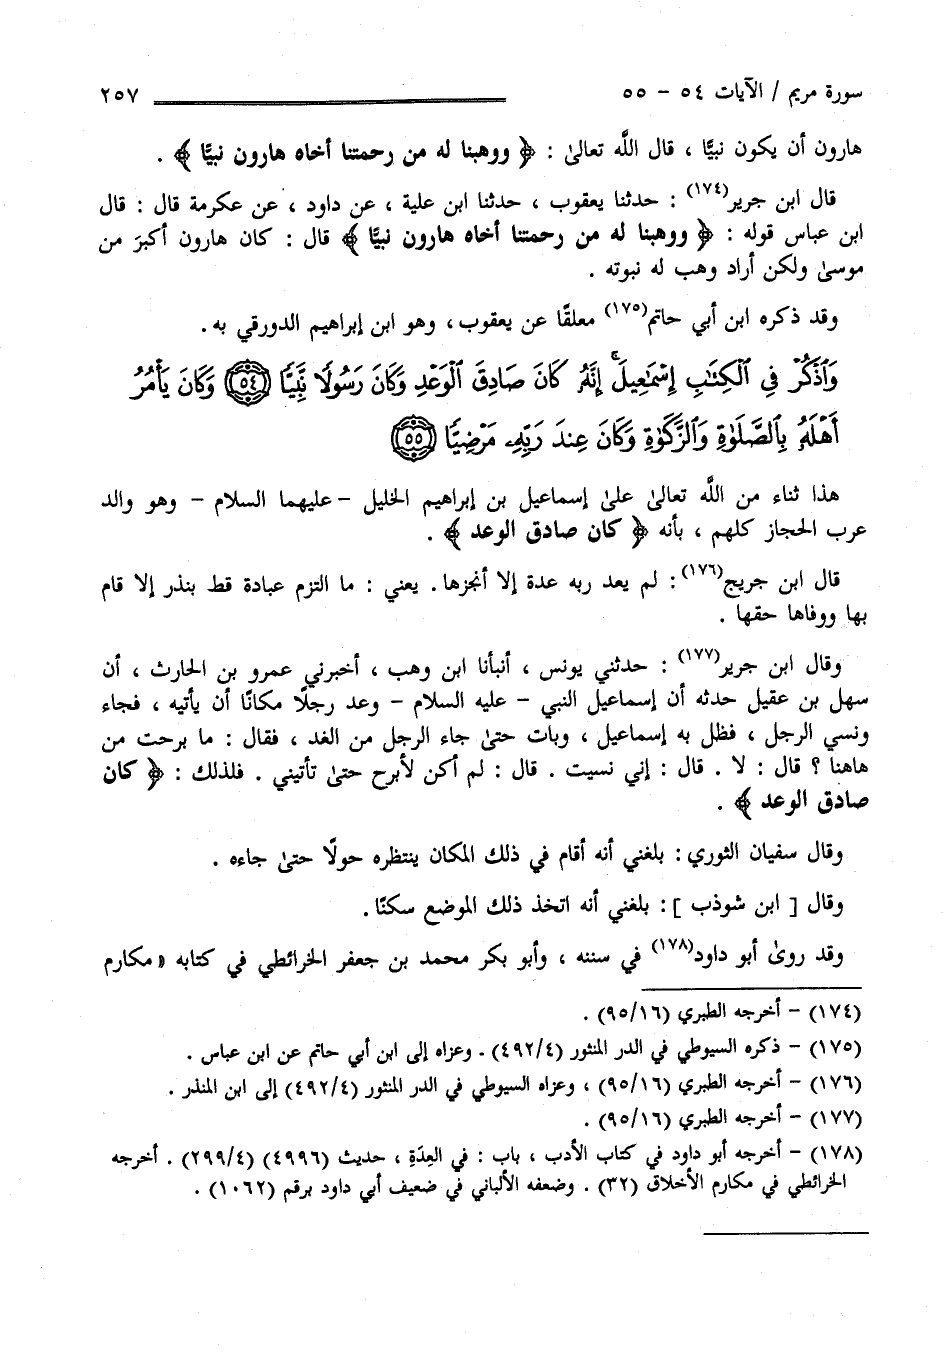 سورة مريم / الآيات ٥٤ - ٥٥ ٢٥٧
هارون أن يكون نبيًّا ، قال اللَّه تعالىٰ : ﴿ ووهبنا له من رحمتنا أخاه هارون نبيًّا ﴾ .
قال ابن جرير(١٧٤) : حدثنا يعقوب ، حدثنا ابن علية ، عن داود ، عن عكرمة قال : قال
ابن عباس قوله : ﴿ ووهبنا له من رحمتنا أخاه هارون نبيًّا ﴾ قال : كان هارون أكبرَ من
موسىٰ ولكن أراد وهب له نبوته .
وقد ذكره ابن أبي حاتم(١٧٥) معلقًا عن يعقوب ، وهو ابن إبراهيم الدورقي به .
وَٱذْكُرْ فِى ٱلْكِتَٰبِ إِسْمَٰعِيلَ ۚ إِنَّهُۥ كَانَ صَادِقَ ٱلْوَعْدِ وَكَانَ رَسُولًا نَّبِيًّا ﴿٥٤﴾ وَكَانَ يَأْمُرُ
أَهْلَهُۥ بِٱلصَّلَوٰةِ وَٱلزَّكَوٰةِ وَكَانَ عِندَ رَبِّهِۦ مَرْضِيًّا ﴿٥٥﴾
هذا ثناء من اللَّه تعالىٰ علىٰ إسماعيل بن إبراهيم الخليل - عليهما السلام - وهو والد
عرب الحجاز كلهم ، بأنه ﴿ كان صادق الوعد ﴾ .
قال ابن جريج(١٧٦) : لم يعد ربه عدة إلا أنجزها . يعني : ما التزم عبادة قط بنذر إلا قام
بها ووفاها حقها .
وقال ابن جرير(١٧٧) : حدثني يونس ، أنبأنا ابن وهب ، أخبرني عمرو بن الحارث ، أن
سهل بن عقيل حدثه أن إسماعيل النبي - عليه السلام - وعد رجلًا مكانًا أن يأتيه ، فجاء
ونسي الرجل ، فظل به إسماعيل ، وبات حتىٰ جاء الرجل من الغد ، فقال : ما برحت من
هاهنا ؟ قال : لا . قال : إني نسيت . قال : لم أكن لأبرح حتىٰ تأتيني . فلذلك : ﴿ كان
صادق الوعد ﴾ .
وقال سفيان الثوري : بلغني أنه أقام في ذلك المكان ينتظره حولًا حتىٰ جاءه .
وقال [ ابن شوذب ] : بلغني أنه اتخذ ذلك الموضع سكنًا .
وقد روىٰ أبو داود(١٧٨) في سننه ، وأبو بكر محمد بن جعفر الخرائطي في كتابه « مكارم
(١٧٤) - أخرجه الطبري (٩٥/١٦) .
(١٧٥) - ذكره السيوطي في الدر المنثور (٤٩٢/٤) . وعزاه إلى ابن أبي حاتم عن ابن عباس .
(١٧٦) - أخرجه الطبري (٩٥/١٦) ، وعزاه السيوطي في الدر المنثور (٤٩٢/٤) إلى ابن المنذر .
(١٧٧) - أخرجه الطبري (٩٥/١٦) .
(١٧٨) - أخرجه أبو داود في كتاب الأدب ، باب : في العِدَةِ ، حديث (٤٩٩٦) (٢٩٩/٤) . أخرجه
الخرائطي في مكارم الأخلاق (٣٢) . وضعفه الألباني في ضعيف أبي داود برقم (١٠٦٢) .